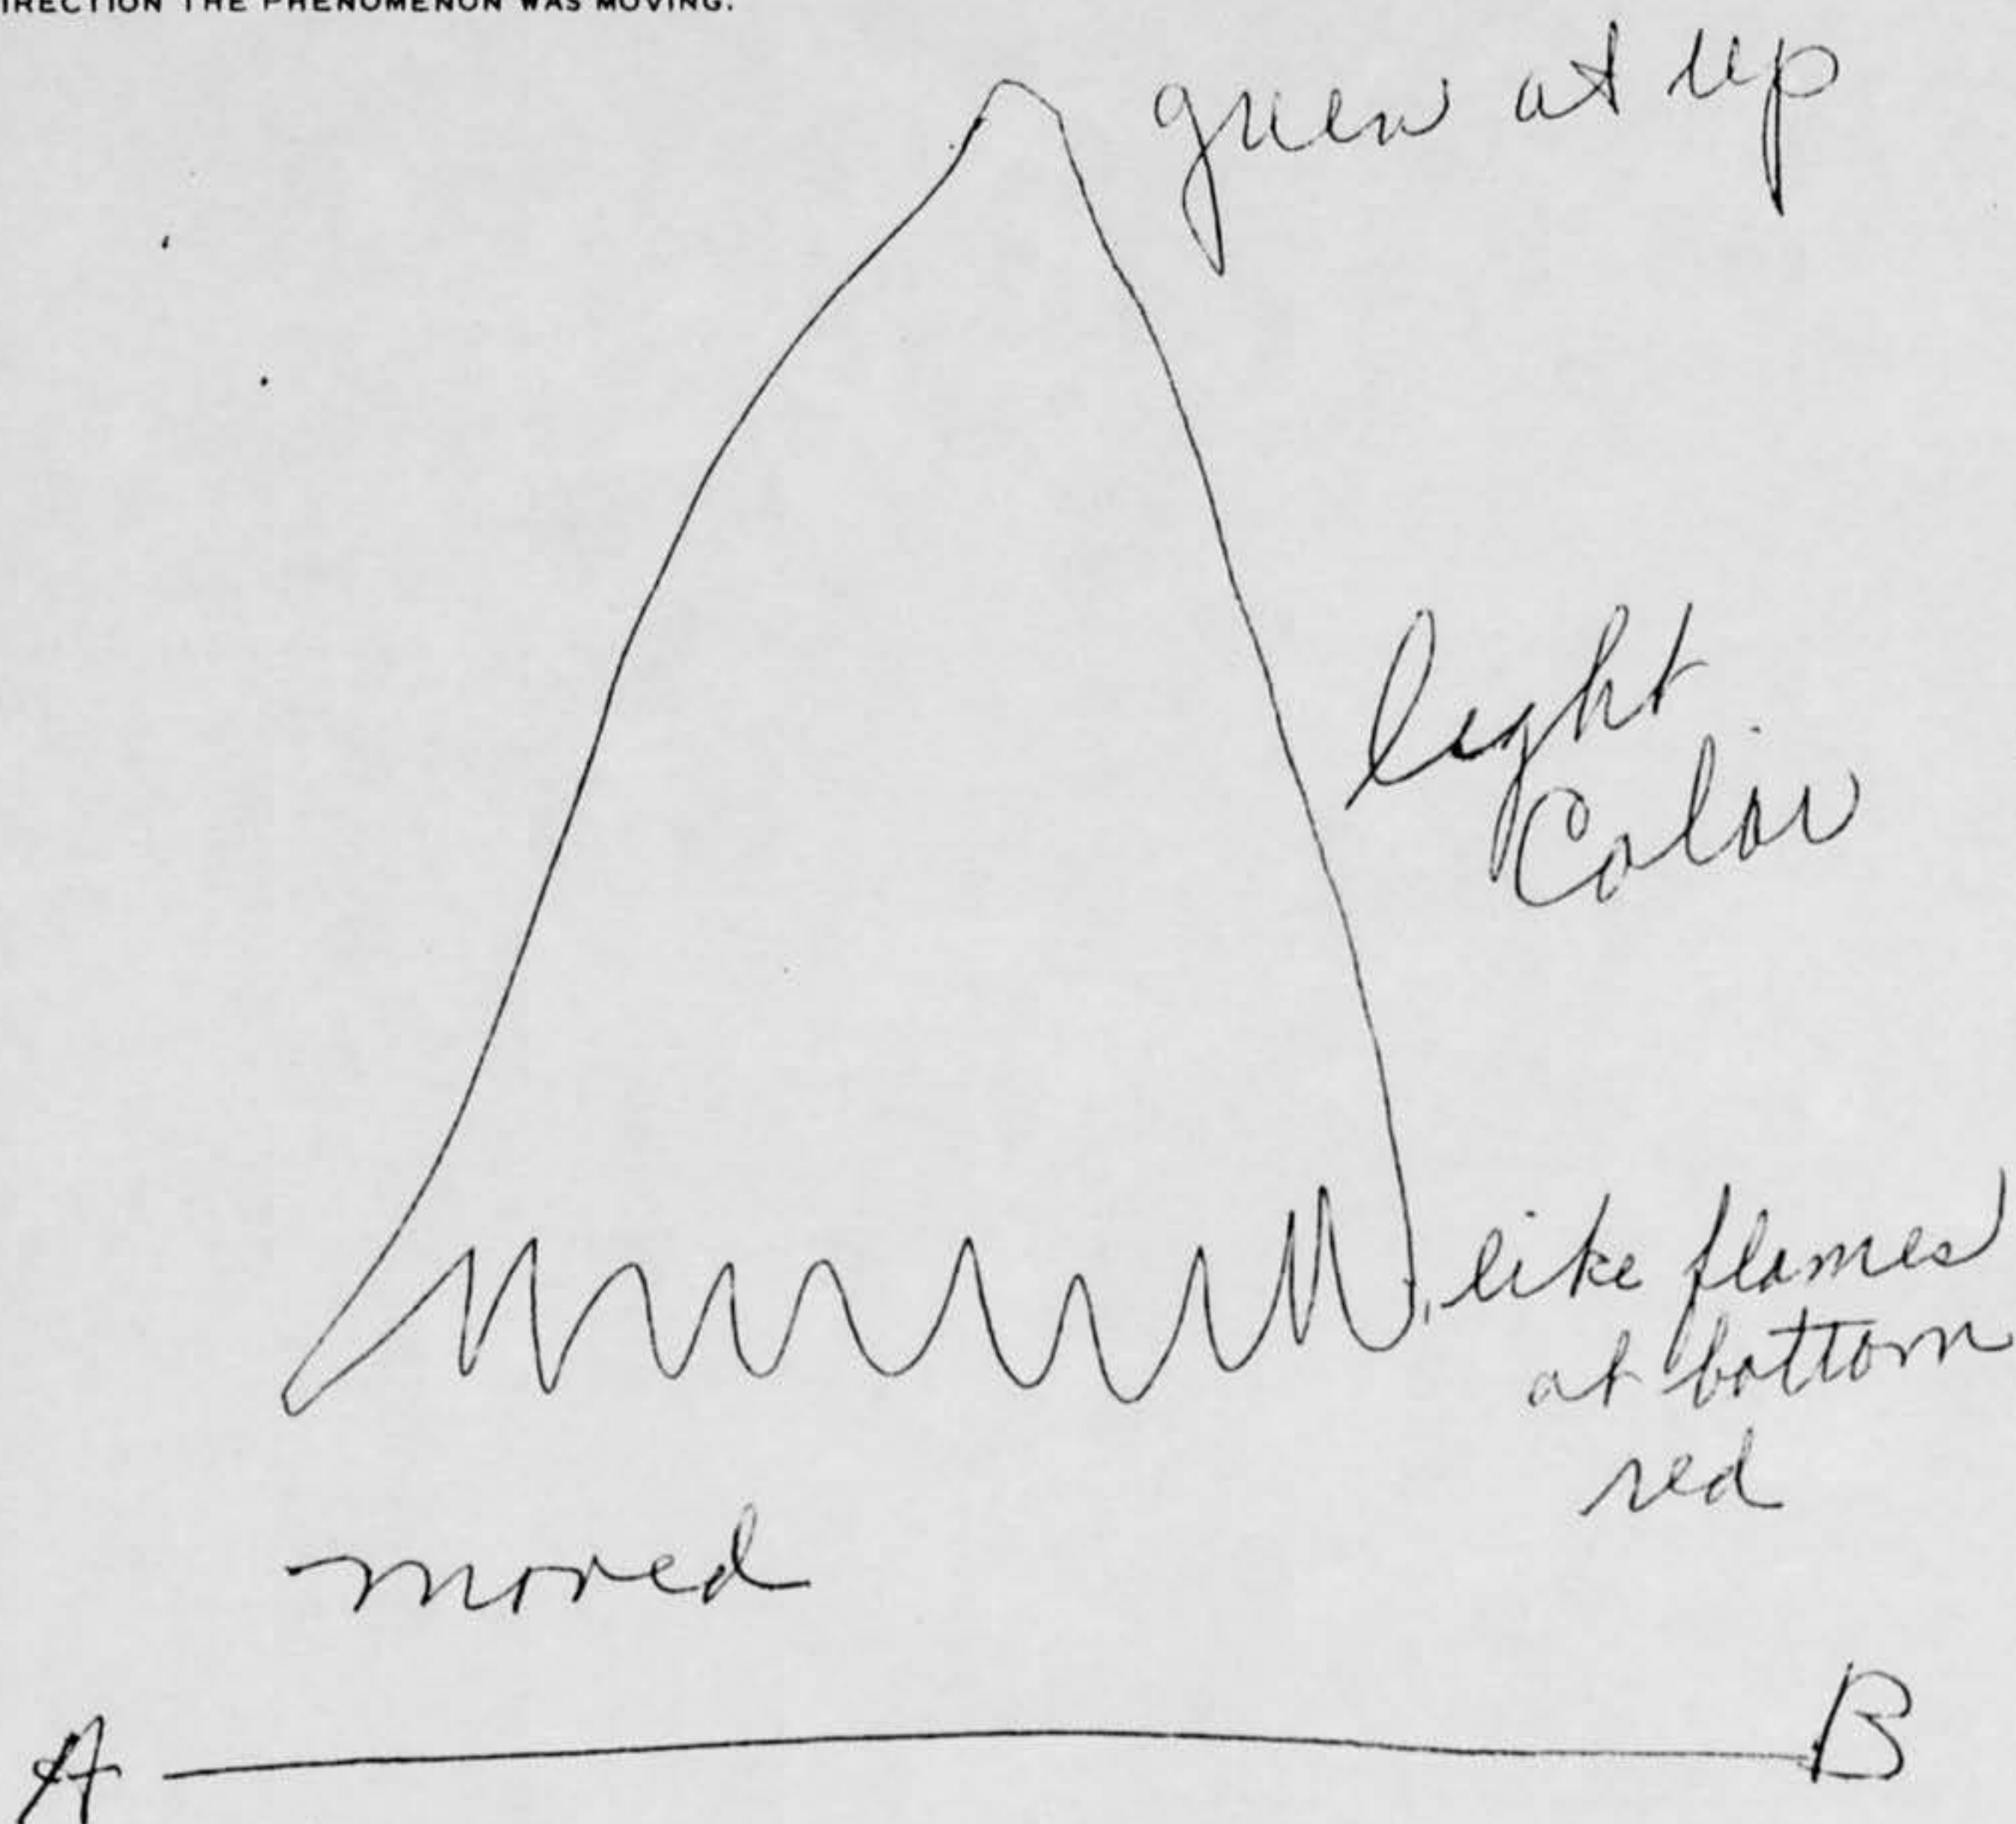 IRECTION THE PHENOMENON WAS MOVING.
green at up
light
Color
like flames
at bottom
red
moved
A B